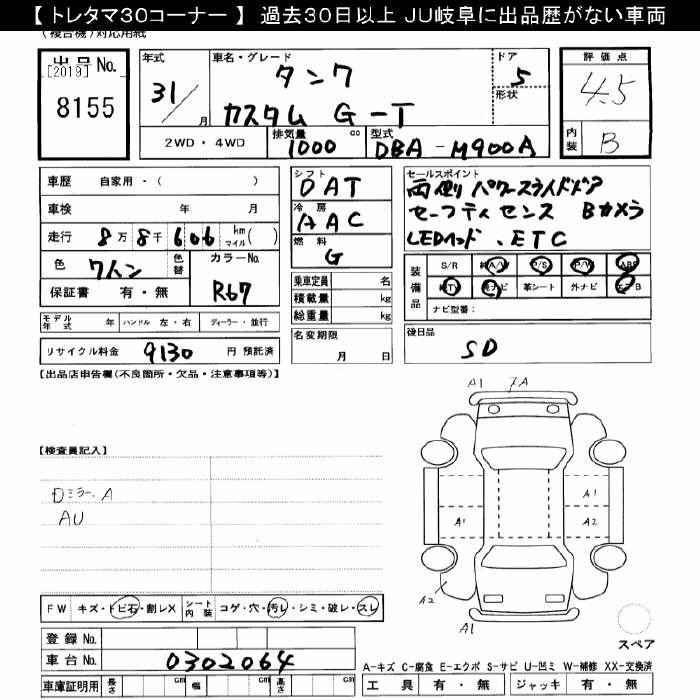 【 トレタマ30コーナー 】 過去30日以上 JU岐阜に出品歴がない車両
(複合機)対応用紙
出品 No.
[2019]
8155
年式 31/ 月
車名・グレード タンク
カスタム G-T
ドア 5
形状
2WD・4WD
排気量 1000 cc
型式 DBA-M900A
評価点
4.5
内装 B
車歴 自家用・( )
車検 年 月
走行 8万8千606 km マイル( )
色 ワイン 色替 カラーNo. R67
保証書 有・無
シフト DAT
冷房 AAC
燃料 G
乗車定員 名
積載量 kg
総重量 kg
セールスポイント
両側パワースライドドア
セーフティセンス Bカメラ
LEDヘッド、ETC
装備品
S/R 純A/W P/S P/W ABS
純TV 純ナビ 革シート 外ナビ エアB
ナビ型番:
モデル年式 年 ハンドル 左・右 ディーラー・並行
リサイクル料金 9130 円 預託済
名変期限
月 日
後日品
SD
【出品店申告欄(不良箇所・欠品・注意事項等)】
A1 7A
【検査員記入】
Dミラー A
AU
A1
A1 A2
A2
A1
FW キズ・トビ石・割レX シート内装 コゲ・穴・汚レ・シミ・破レ・スレ
スペア
登録 No.
車台 No. 0302064
A-キズ C-腐食 E-エクボ S-サビ U-凹ミ W-補修 XX-交換済
車庫証明用 長さ cm 幅 cm 高さ cm
工具 有・無 ジャッキ 有・無